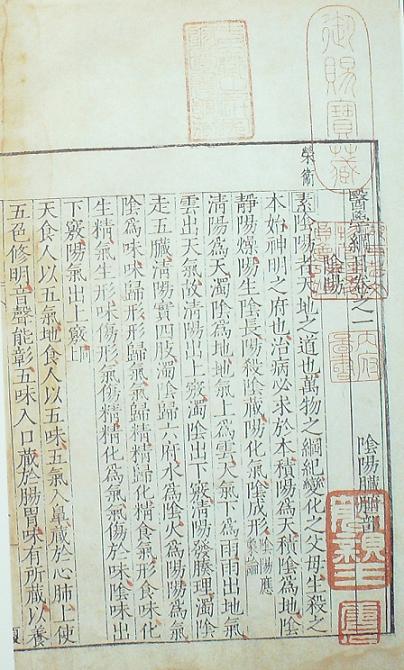 御賜寶藏
醫學綱目卷之一 陰陽臟腑部
陰陽
榮衛
素陰陽者天地之道也萬物之綱紀變化之父母生殺之
本始神明之府也治病必求於本積陽為天積陰為地陰
靜陽燥陽生陰長陽殺陰藏陽化氣陰成形陰陽應象論
清陽為天濁陰為地地氣上為雲天氣下為雨雨出地氣
雲出天氣故清陽出上竅濁陰出下竅清陽發腠理濁陰
走五臟清陽實四肢濁陰歸六府水為陰火為陽陽為氣
陰為味味歸形形歸氣氣歸精精歸化精食氣形食味化
生精氣生形味傷形氣傷精精化為氣氣傷於味陰味出
下竅陽氣出上竅
天食人以五氣地食人以五味五氣入鼻藏於心肺上使
五色修明音聲能彰五味入口藏於腸胃味有所藏以養